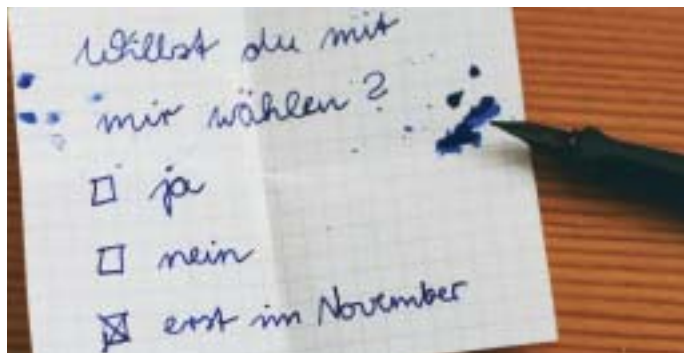 Willst du mit
mir wählen?
ja
nein
erst im November